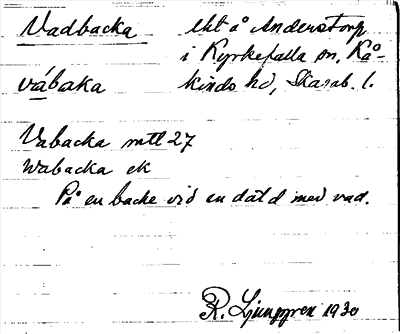 Vadbacka ekt å Anderstorp
i Kyrkefalla sn, Kå-
vábaka kinds hd, Skarab. l.
Vabacka mtl 27
Wabacka ek
På en backe vid en dåld med vad.
R. Ljunggren 1930